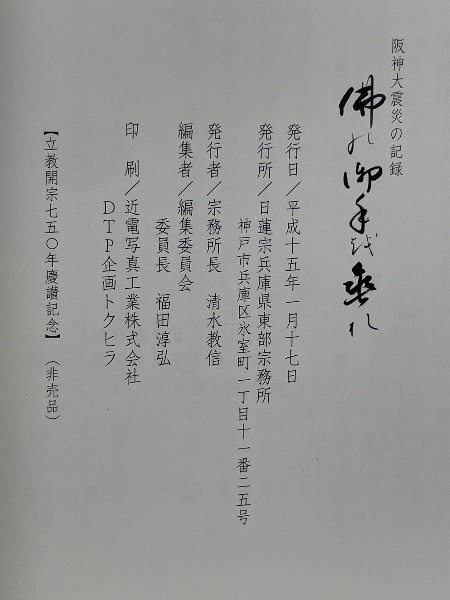 阪神大震災の記録
佛の御手を垂れ
発行日／平成十五年一月十七日
発行所／日蓮宗兵庫県東部宗務所
神戸市兵庫区氷室町一丁目十一番二五号
発行者／宗務所長　清水教信
編集者／編集委員会
委員長　福田淳弘
印　刷／近電写真工業株式会社
ＤＴＰ企画トクヒラ
【立教開宗七五〇年慶讃記念】　（非売品）